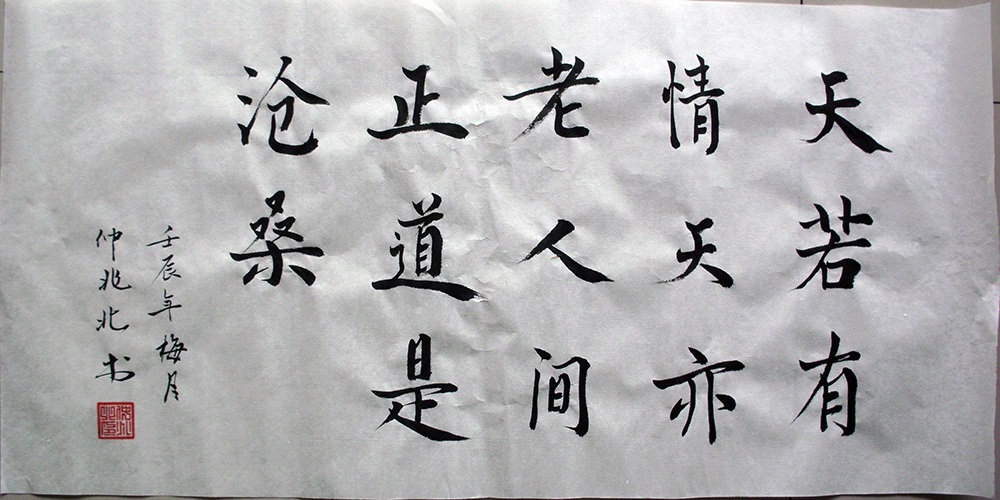 天若有
情天亦
老人间
正道是
沧桑
壬辰年梅月
仲兆北书